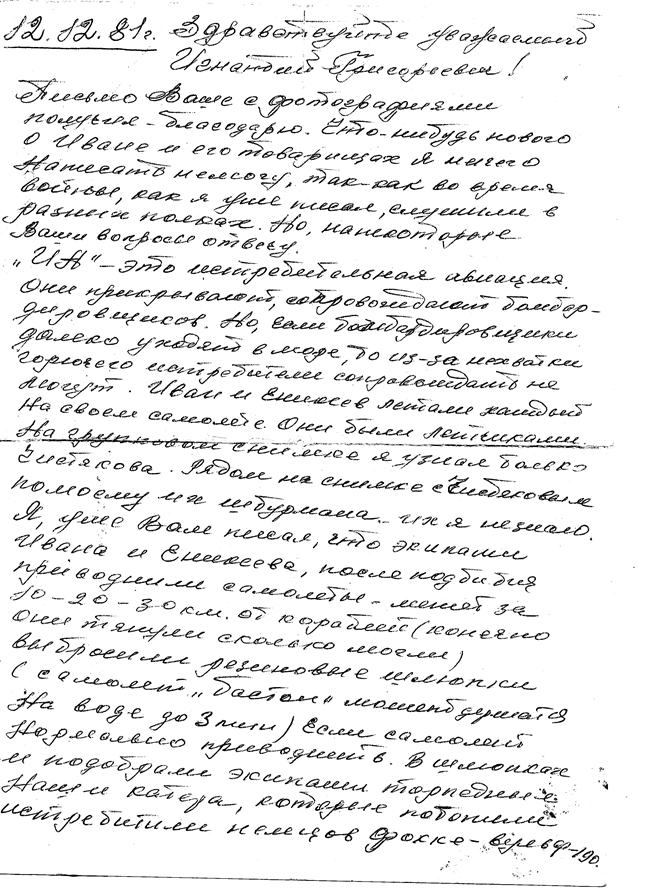 12.12.81г. Здравствуйте уважаемый
Игнатий Григорьевич!
Письмо Ваше с фотографиями
получил - благодарю. Что-нибудь нового
о Иване и его товарищах я ничего
написать немогу, так-как во время
войны, как я уже писал, служили в
разных полках. Но, нанекоторые
Ваши вопросы отвечу.
„ИА" - это истребительная авиация.
Они прикрывают, сопровождают бомбар-
дировщиков. Но, если бомбардировщики
далеко уходят в море, то из-за нехватки
горючего истребители сопровождать не
могут. Иван и Еникеев летали каждый
на своем самолёте. Они были летчиками.
На групповом снимке я узнал только
Чистякова. Рядом на снимке с
помоему их штурмана. их я незнаю.
Я, уже Вам писал, что экипажи
Ивана и Еникеева, после подбития
приводнили самолеты - может за
10-20-30 км. от кораблей (конечно
они тянули сколько могли)
выбросили резиновые шлюпки
(самолет „бостон" может держатся
на воде до 3 мин) Если самолет
нормально приводнить. В шлюпках
и подобрали экипажи торпедные
наши катера, которые потопили
истребители немцов Фокке-Вульф-190.